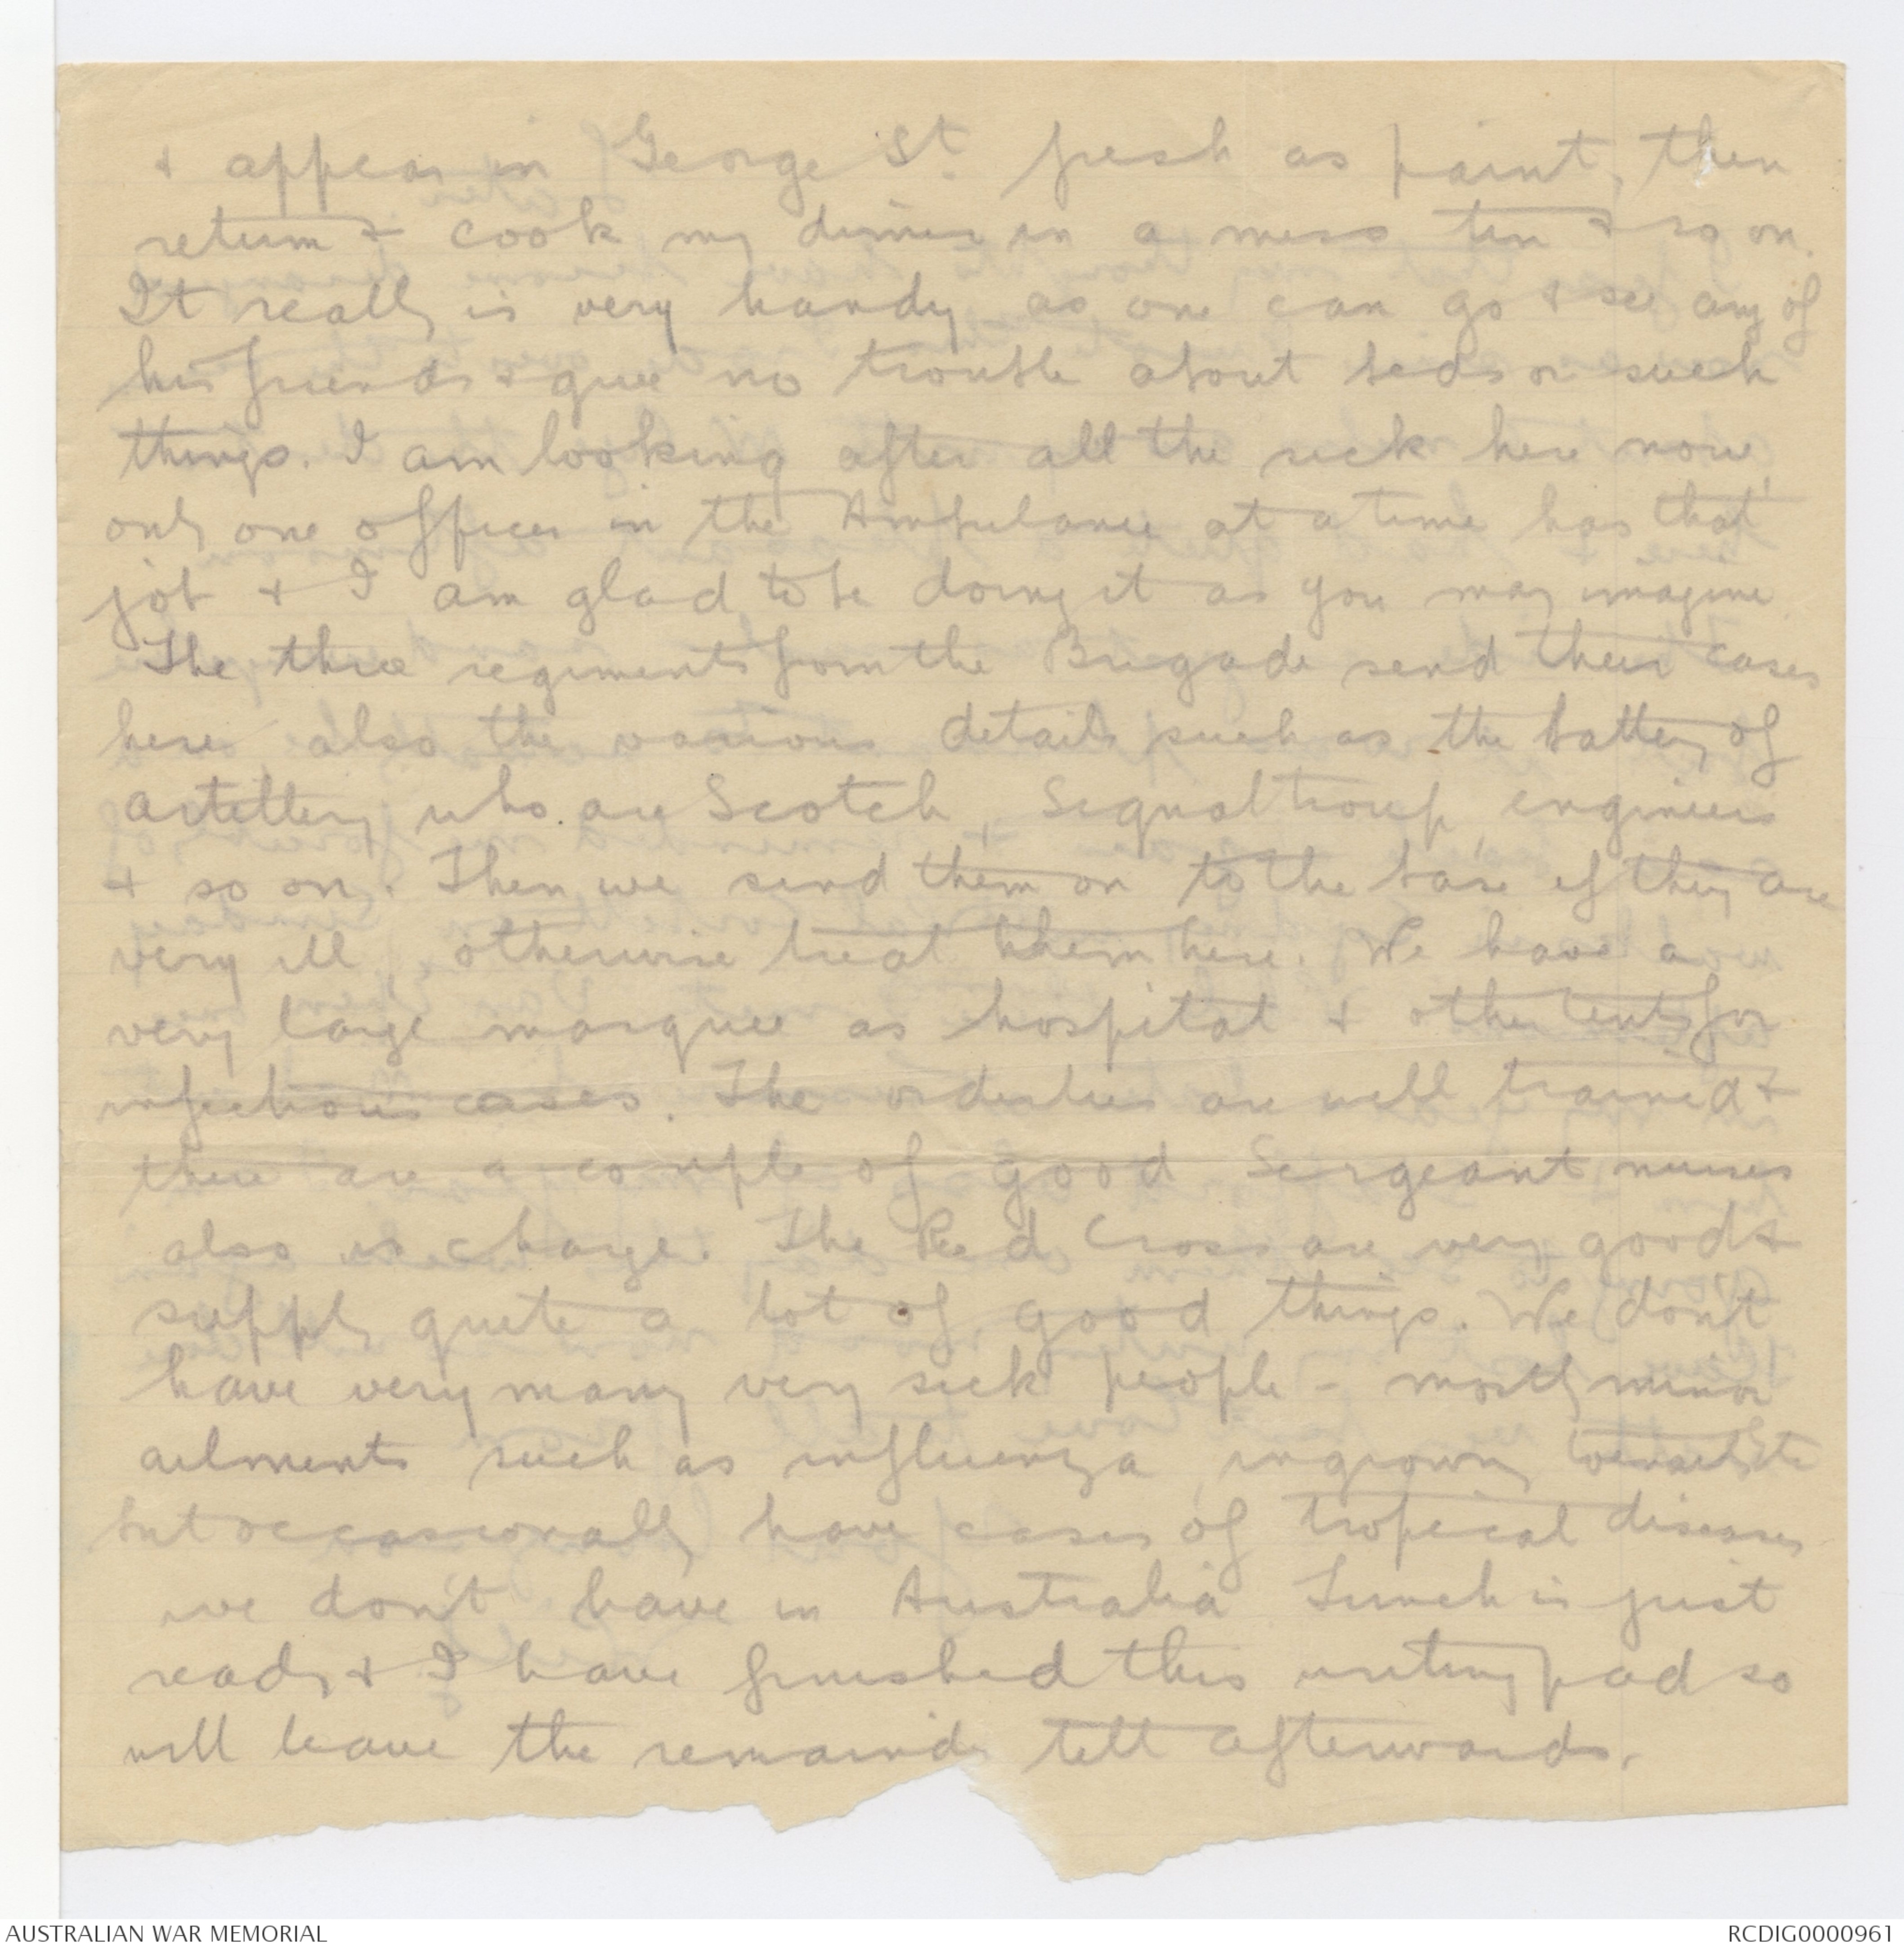 & appear in George St. fresh as paint, then
return & cook my dinner in a mess tin & so on.
It really is very handy as one can go & see any of
his friends & give no trouble about beds or such
things. I am looking after all the sick here now,
only one officer in the Ambulance at a time has that
job & I am glad to be doing it as you may imagine.
The three regiments from the Brigade send their cases
here also the various details such as the battery of
artillery who are Scotch, Signal troup, engineers
& so on. Then we send them on to the base if they are
very ill, otherwise treat them here. We have a
very large marquee as hospital & other tents for
infectious cases. The orderlies are well trained &
there are a couple of good Sergeant nurses
also in charge. The Red Cross are very good &
supply quite a lot of good things. We don't
have very many very sick people - mostly minor
ailments such as influenza, ingrown toenails etc
but occasionally have cases of tropical diseases
we don't have in Australia Lunch is just
ready & I have finished this writing pad so
will leave the remainder till afterwards.
AUSTRALIAN WAR MEMORIAL
RCDIG0000961